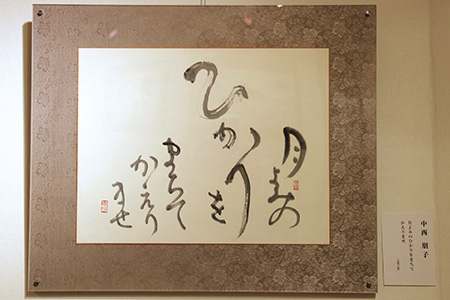 月よみの
ひかりを
まちて
かえり
ませ
中西 朋子
月よみのひかりをまちて
かえりませ